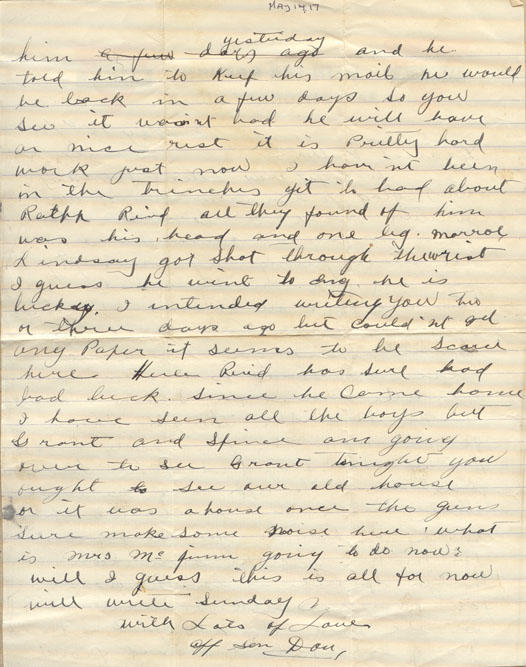 May 14, 17
yesterday
him a few days ago and he
told him to keep his mail he would
be back in a few days so you
see it wasn't bad he will have
or nice rest it is Pretty hard
work just now I hav'nt been
in the trinches yet to bad about
Ralph Reid all they found of him
was his head and one leg. Monroe
Lindsay got shot through the wrist
I guess he went to dig he is
lucky. I intended writing you two
or three days ago but could'nt get
any Paper it seems to be scarce
here Reid has sure had
bad luck since he came home
I have seen all the boys but
Grant and Spince am going
over to see Grant tonight you
ought to see our old house
or it was a house once the guns
sure make some noise here what
is Mrs Mc going to do now?
will I guess this is all for now
will write Sunday
with Lots of Love
aff son Don,